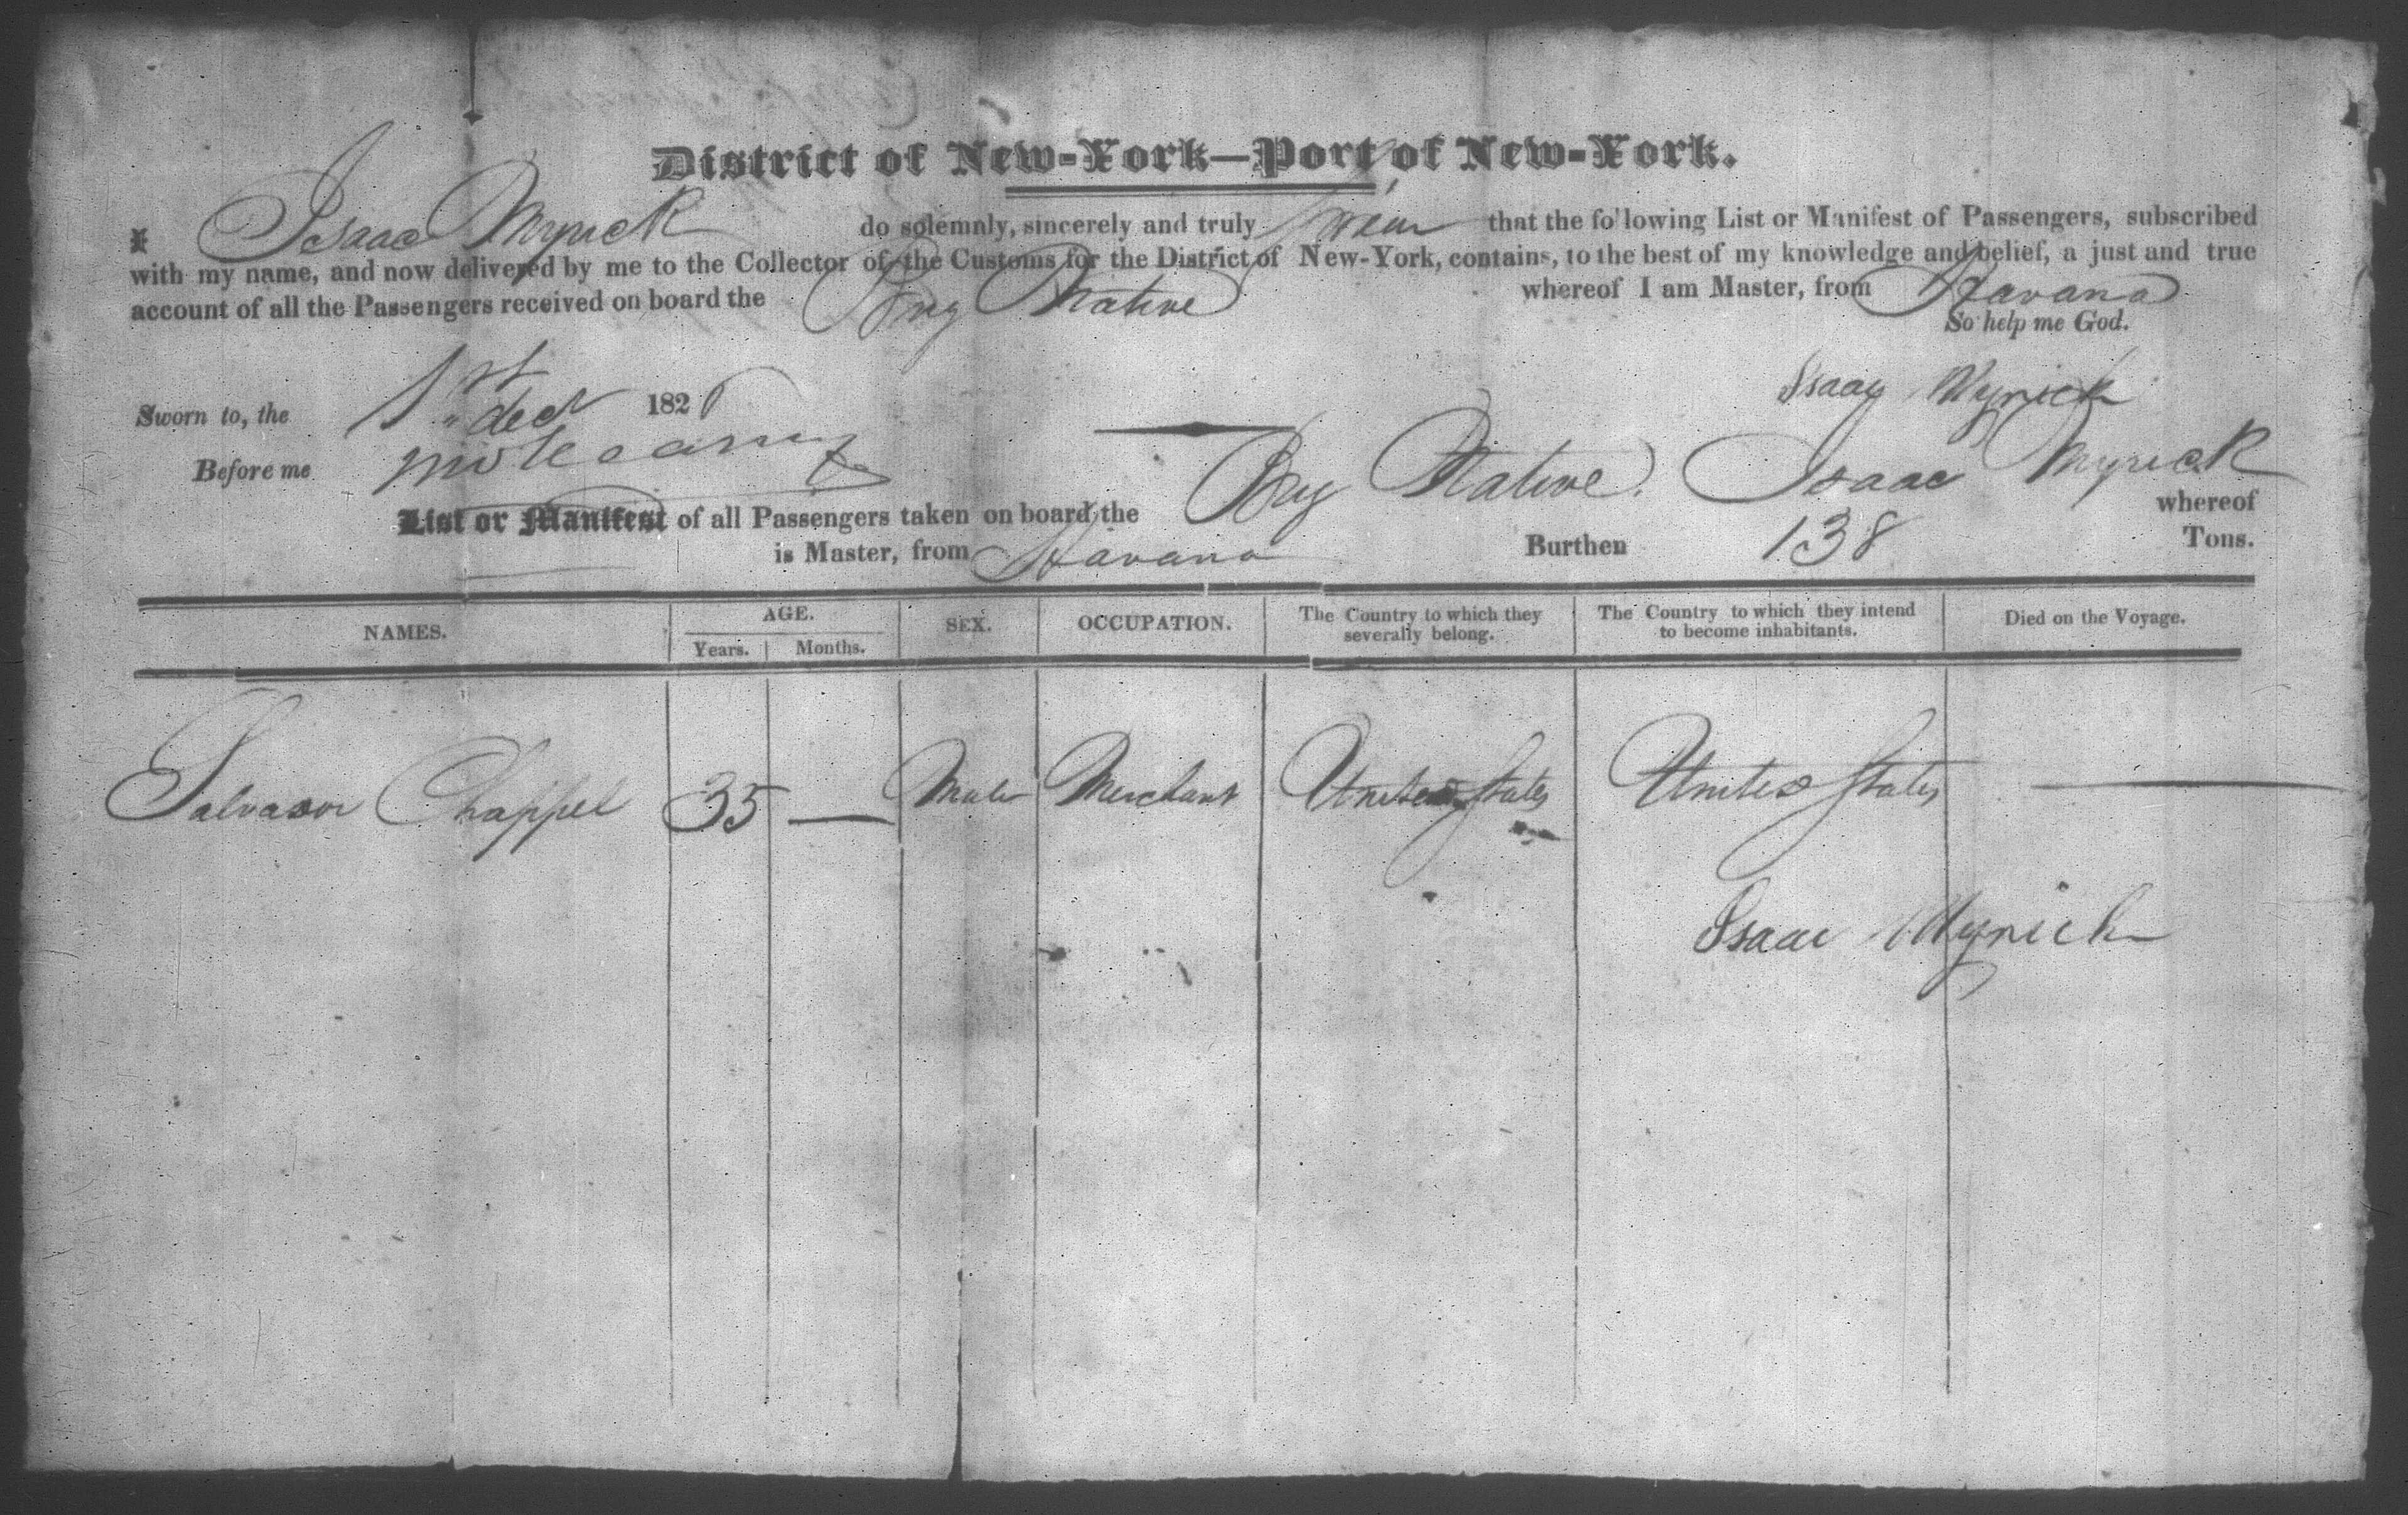 District of New-York—Port of New-York.
I Isaac Myrick do solemnly, sincerely and truly swear that the following List or Manifest of Passengers, subscribed
with my name, and now delivered by me to the Collector of the Customs for the District of New-York, contains, to the best of my knowledge and belief, a just and true
account of all the Passengers received on board the Brig Native whereof I am Master, from Havana
So help me God.
Sworn to, the 1st decr 182
Isaac Myrick
Before me
List or Manifest of all Passengers taken on board the Brig Native. Isaac Myrick whereof
is Master, from Havana Burthen 138 Tons.
NAMES. AGE. SEX. OCCUPATION. The Country to which they severally belong. The Country to which they intend to become inhabitants. Died on the Voyage.
Years. Months.
Salvador Chappel 35 — Male Merchant United States United States —
Isaac Myrick